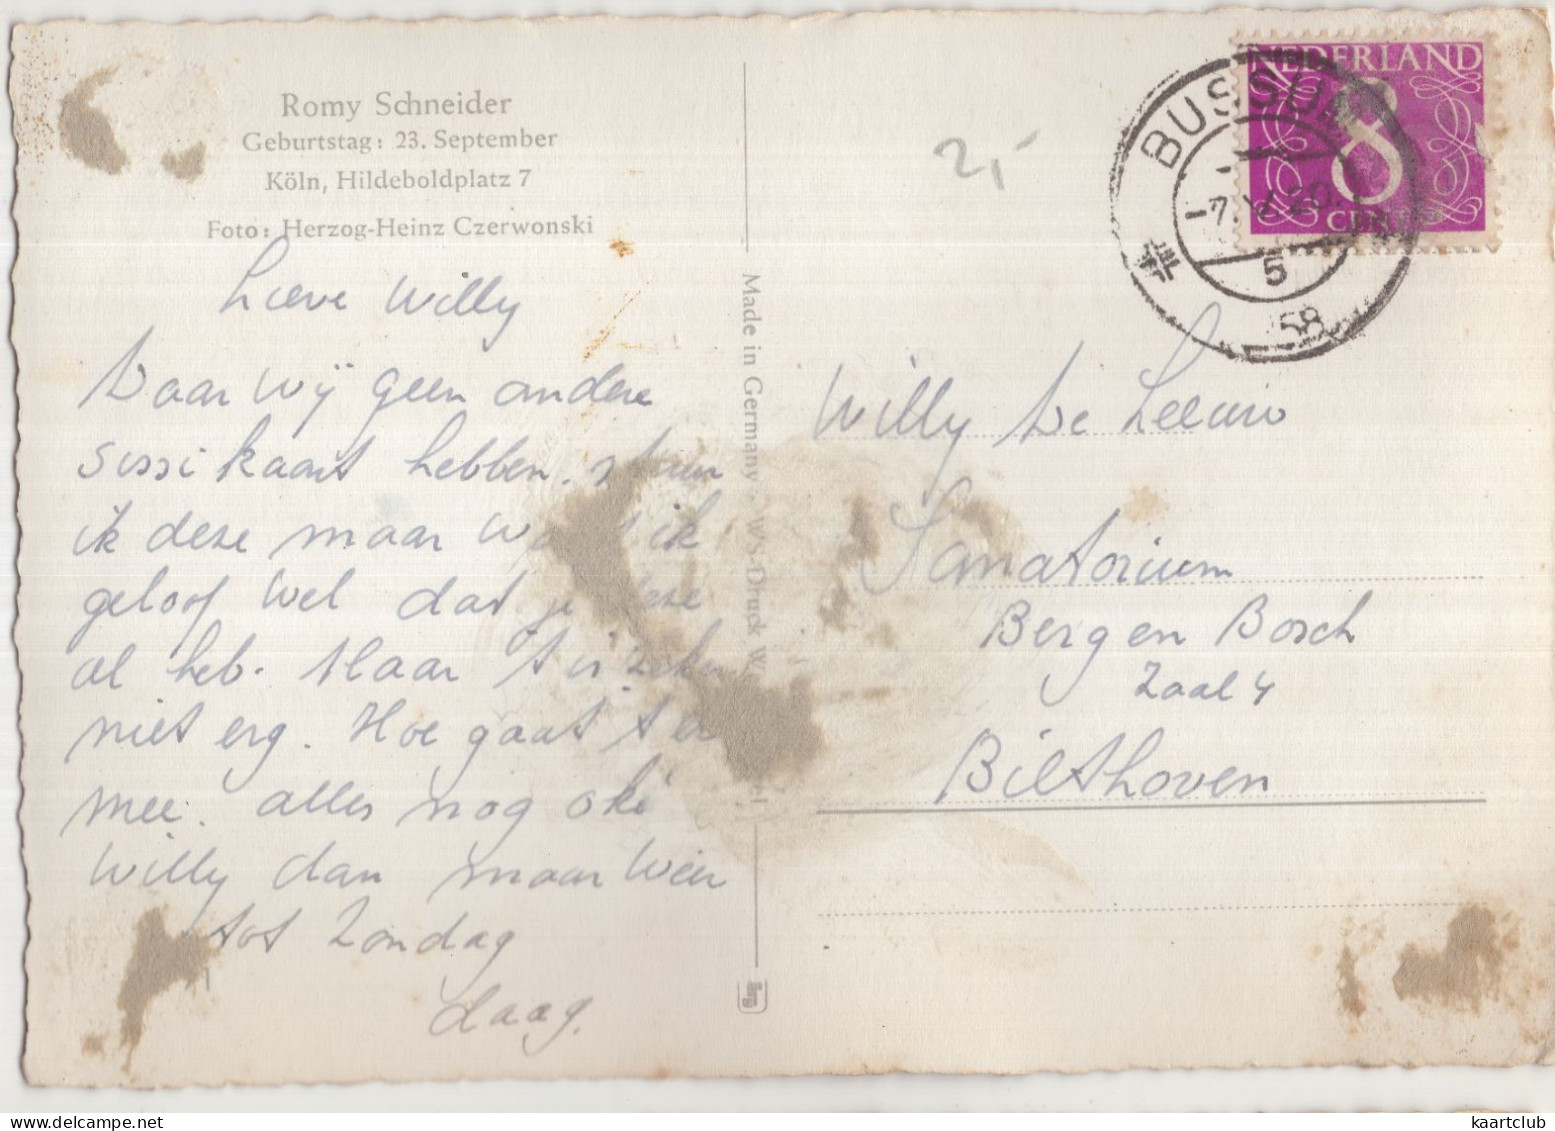 Romy Schneider
Geburtstag: 23. September
Köln, Hildeboldplatz 7
Foto: Herzog-Heinz Czerwonski
Lieve Willy
Daar wij geen andere
Sissi kaart hebben, stuur
ik deze maar want ik
geloof wel dat je deze
al heb. Maar 't is zeker
niet erg. Hoe gaat 't er
mee. alles nog oké
Willy dan maar weer
tot Zondag
daag.
Made in Germany - WS-Druck
2,-
NEDERLAND
8
CENT
BUSSUM
-7.V.20.
5
58
Willy De Leeuw
Sanatorium
Berg en Bosch
Zaal 4
Bilthoven
kaartclub